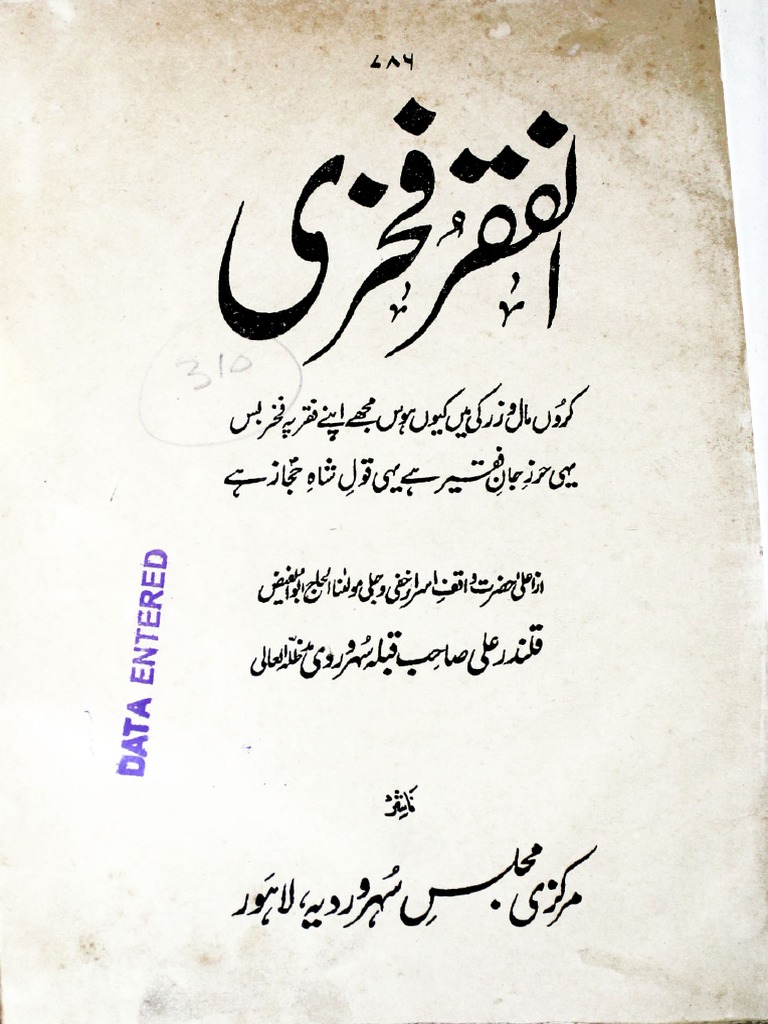 ۷۸۶
الفقر فخری
310
کروں مال و زر کی میں کیوں ہوس مجھے اپنے فقر پہ فخر بس
یہی حرزِ جانِ فقیر ہے یہی قولِ شاہِ حجاز ہے
از اعلیٰ حضرت واقفِ اسرارِ خفی و جلی مولٰنا الحاج ابوالفیض
قلندر علی صاحب قبلہ سُہروردی مدظلہ العالی
DATA ENTERED
ناشر
مرکزی مجلسِ سُہروردیہ، لاہور